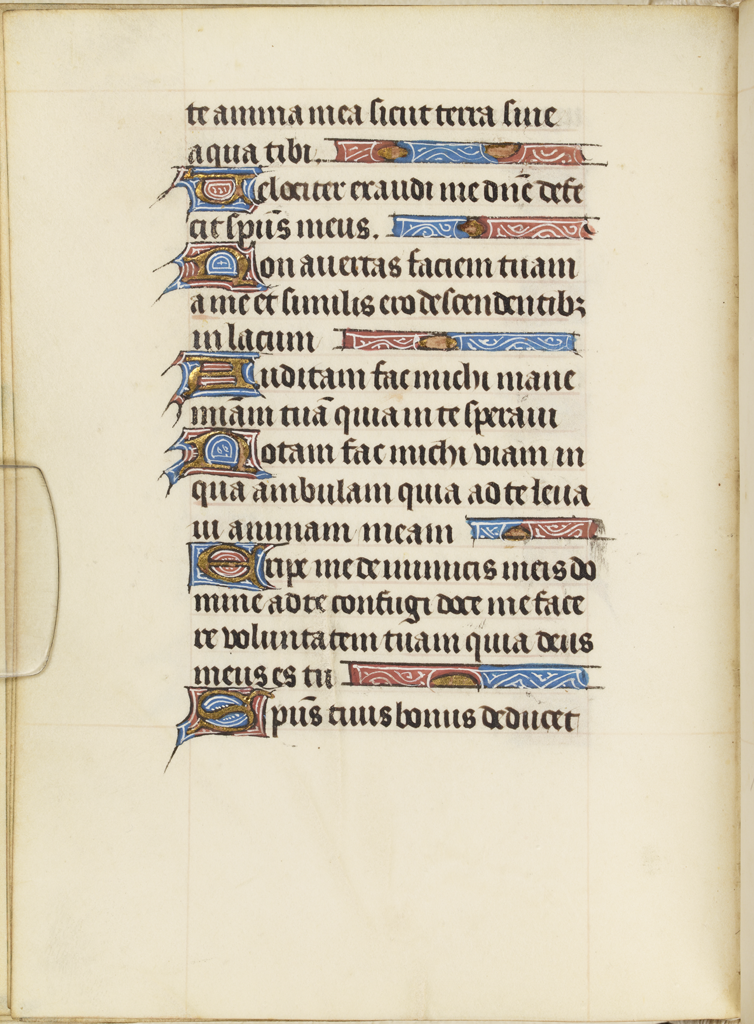 te anima mea sicut terra sine
aqua tibi.
Velociter exaudi me dn̄e defe
cit sp̄us meus.
Non auertas faciem tuam
a me et similis ero descendentibꝫ
in lacum
Auditam fac michi mane
mīam tuā quia in te speraui
Notam fac michi viam in
qua ambulam quia ad te leua
ui animam meam
Eripe me de inimicis meis do
mine ad te confugi doce me face
re voluntatem tuam quia deus
meus es tu
Sp̄us tuus bonus deducet